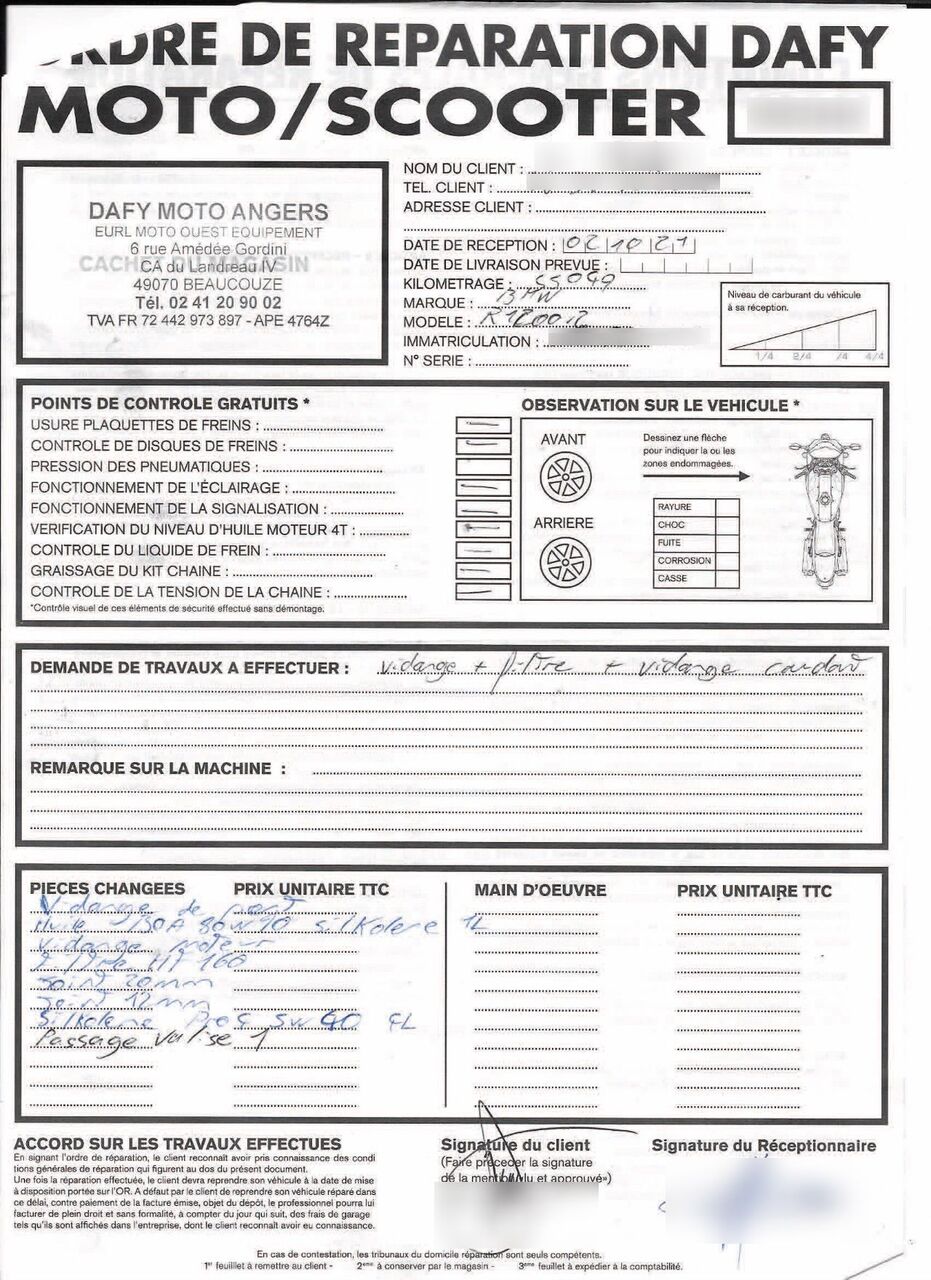 ORDRE DE REPARATION DAFY
MOTO/SCOOTER
DAFY MOTO ANGERS
EURL MOTO OUEST EQUIPEMENT
6 rue Amédée Gordini
CACHET DU MAGASIN
CA du Landreau IV
49070 BEAUCOUZE
Tél. 02 41 20 90 02
TVA FR 72 442 973 897 - APE 4764Z
NOM DU CLIENT :
TEL. CLIENT :
ADRESSE CLIENT :
DATE DE RECEPTION : 02 10 21
DATE DE LIVRAISON PREVUE :
KILOMETRAGE : 55049
MARQUE : BMW
MODELE : R1200R
IMMATRICULATION :
N° SERIE :
Niveau de carburant du véhicule
à sa réception.
1/4 2/4 /4 4/4
POINTS DE CONTROLE GRATUITS *
USURE PLAQUETTES DE FREINS :
CONTROLE DE DISQUES DE FREINS :
PRESSION DES PNEUMATIQUES :
FONCTIONNEMENT DE L'ÉCLAIRAGE :
FONCTIONNEMENT DE LA SIGNALISATION :
VERIFICATION DU NIVEAU D'HUILE MOTEUR 4T :
CONTROLE DU LIQUIDE DE FREIN :
GRAISSAGE DU KIT CHAINE :
CONTROLE DE LA TENSION DE LA CHAINE :
*Contrôle visuel de ces éléments de sécurité effectué sans démontage.
OBSERVATION SUR LE VEHICULE *
AVANT
ARRIERE
Dessinez une flèche
pour indiquer la ou les
zones endommagées.
RAYURE
CHOC
FUITE
CORROSION
CASSE
DEMANDE DE TRAVAUX A EFFECTUER : vidange + filtre + vidange cardan
REMARQUE SUR LA MACHINE :
PIECES CHANGEES PRIX UNITAIRE TTC MAIN D'OEUVRE PRIX UNITAIRE TTC
Vidange de pont
Huile BOA 80W90 Silkolene 1L
Vidange moteur
Filtre HF 160
Joint 20mm
Joint 12mm
Silkolene Pro 4 5W40 4L
Passage valise 1
ACCORD SUR LES TRAVAUX EFFECTUES
En signant l'ordre de réparation, le client reconnaît avoir pris connaissance des condi
tions générales de réparation qui figurent au dos du présent document.
Une fois la réparation effectuée, le client devra reprendre son véhicule à la date de mise
à disposition portée sur l'OR. A défaut par le client de reprendre son véhicule réparé dans
ce délai, contre paiement de la facture émise, objet du dépôt, le professionnel pourra lui
facturer de plein droit et sans formalité, à compter du jour qui suit, des frais de garage
tels qu'ils sont affichés dans l'entreprise, dont le client reconnaît avoir eu connaissance.
Signature du client
(Faire précéder la signature
de la mention «lu et approuvé»)
Signature du Réceptionnaire
En cas de contestation, les tribunaux du domicile réparation sont seuls compétents.
1er feuillet à remettre au client - 2ème à conserver par le magasin - 3ème feuillet à expédier à la comptabilité.